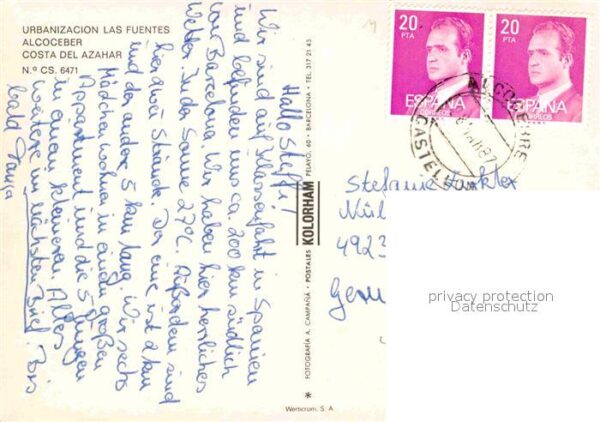 URBANIZACION LAS FUENTES
ALCOCEBER
COSTA DEL AZAHAR
N.º CS. 6471
Hallo Steffi!
Wir sind auf Klassenfahrt in Spanien
und befinden uns ca. 200 km südlich
von Barcelona. Wir haben hier herrliches
Wetter. Jede Sonne 27°C. Außerdem sind
hier zwei Strände. Der eine ist 2 km
und der andere 5 km lang. Wir sechs
Mädchen wohnen in einem großen
Appartment und die 5 Jungen
in einem kleineren. Alles
weitere im nächsten Brief. Bis
bald Tanja
FOTOGRAFIA A. CAMPAÑA • POSTALES KOLORHAM PELAYO, 60 - BARCELONA - TEL. 317 21 43
Wertscrom, S. A.
20
PTA
ESPAÑA
CORREOS
20
PTA
ESPAÑA
CORREOS
CASTELLON
Stefanie
4923
privacy protection
Datenschutz